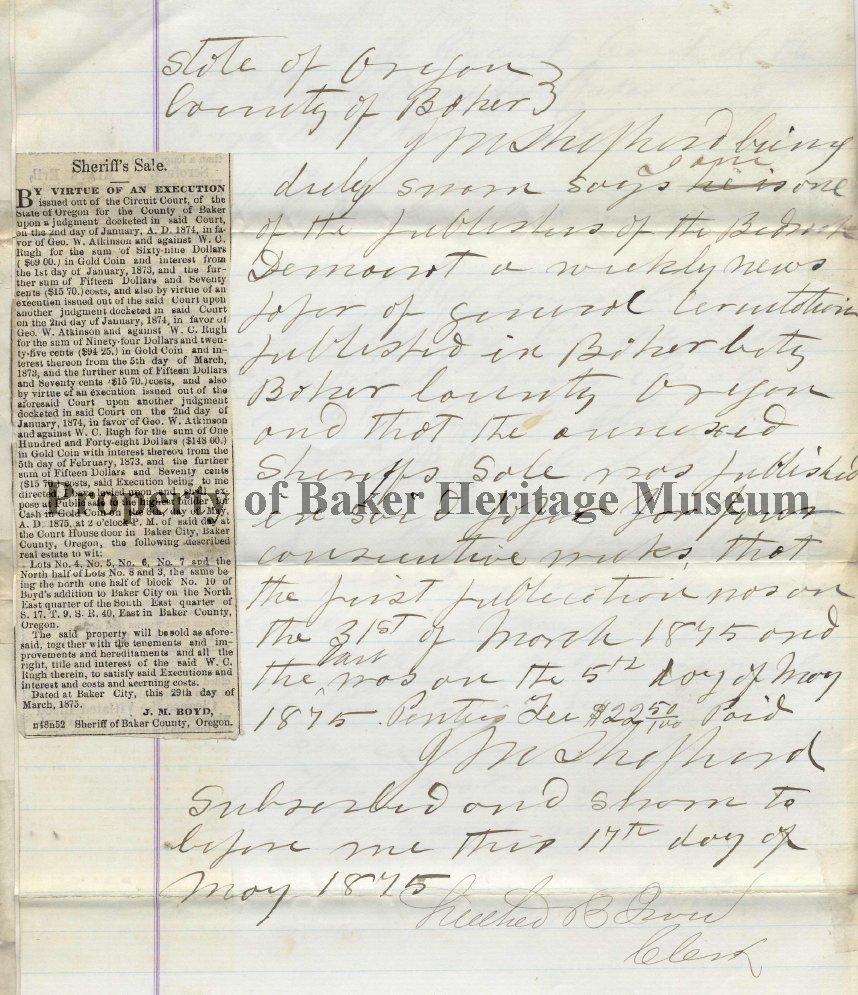 State of Oregon }
County of Baker }
J M Shepherd being
duly sworn says I am he is one
of the publishers of the Bedrock
Democrat a weekly news
paper of general Circulation
published in Baker City
Baker County Oregon
and that the annexed
Sheriffs Sale was published
in said paper for
consecutive weeks, that
the first publication was on
the 31st of March 1875 and
the last was on the 5th day of May
1875. Printers Fee $22 50/100 Paid
J M Shepherd
Subscribed and sworn to
before me this 17th day of
May 1875
Clerk
Sheriff's Sale.
BY VIRTUE OF AN EXECUTION
issued out of the Circuit Court, of the
State of Oregon for the County of Baker
upon a judgment docketed in said Court,
on the 2nd day of January, A. D. 1874, in fa-
vor of Geo. W. Atkinson and against W. C.
Rugh for the sum of Sixty-nine Dollars
($69 00.) in Gold Coin and interest from
the 1st day of January, 1873, and the fur-
ther sum of Fifteen Dollars and Seventy
cents ($15 70.) costs, and also by virtue of an
execution issued out of the said Court upon
another judgment docketed in said Court
on the 2nd day of January, 1874, in favor of
Geo. W. Atkinson and against W. C. Rugh
for the sum of Ninety-four Dollars and twen-
ty-five cents ($94 25.) in Gold Coin and in-
terest thereon from the 5th day of March,
1873, and the further sum of Fifteen Dollars
and Seventy cents ($15 70.) costs, and also
by virtue of an execution issued out of the
aforesaid Court upon another judgment
docketed in said Court on the 2nd day of
January, 1874, in favor of Geo. W. Atkinson
and against W. C. Rugh for the sum of One
Hundred and Forty-eight Dollars ($148 00.)
in Gold Coin with interest thereon from the
5th day of February, 1873, and the further
sum of Fifteen Dollars and Seventy cents
($15 70.) costs, said Execution being to me
directed
pose at Public Sale
Cash in Gold Coin on
A. D. 1875, at 2 o'clock P. M. of said day at
the Court House door in Baker City, Baker
County, Oregon, the following described
real estate to wit:
Lots No. 4, No. 5, No. 6, No. 7 and the
North half of Lots No. 8 and 3, the same be-
ing the north one half of block No. 10 of
Boyd's addition to Baker City on the North
East quarter of the South East quarter of
S. 17. T. 9. S. R. 40, East in Baker County,
Oregon.
The said property will be sold as afore-
said, together with the tenements and im-
provements and hereditaments and all the
right, title and interest of the said W. C.
Rugh therein, to satisfy said Executions and
interest and costs and accruing costs.
Dated at Baker City, this 29th day of
March, 1875.
J. M. BOYD,
n48n52 Sheriff of Baker County, Oregon.
Property of Baker Heritage Museum